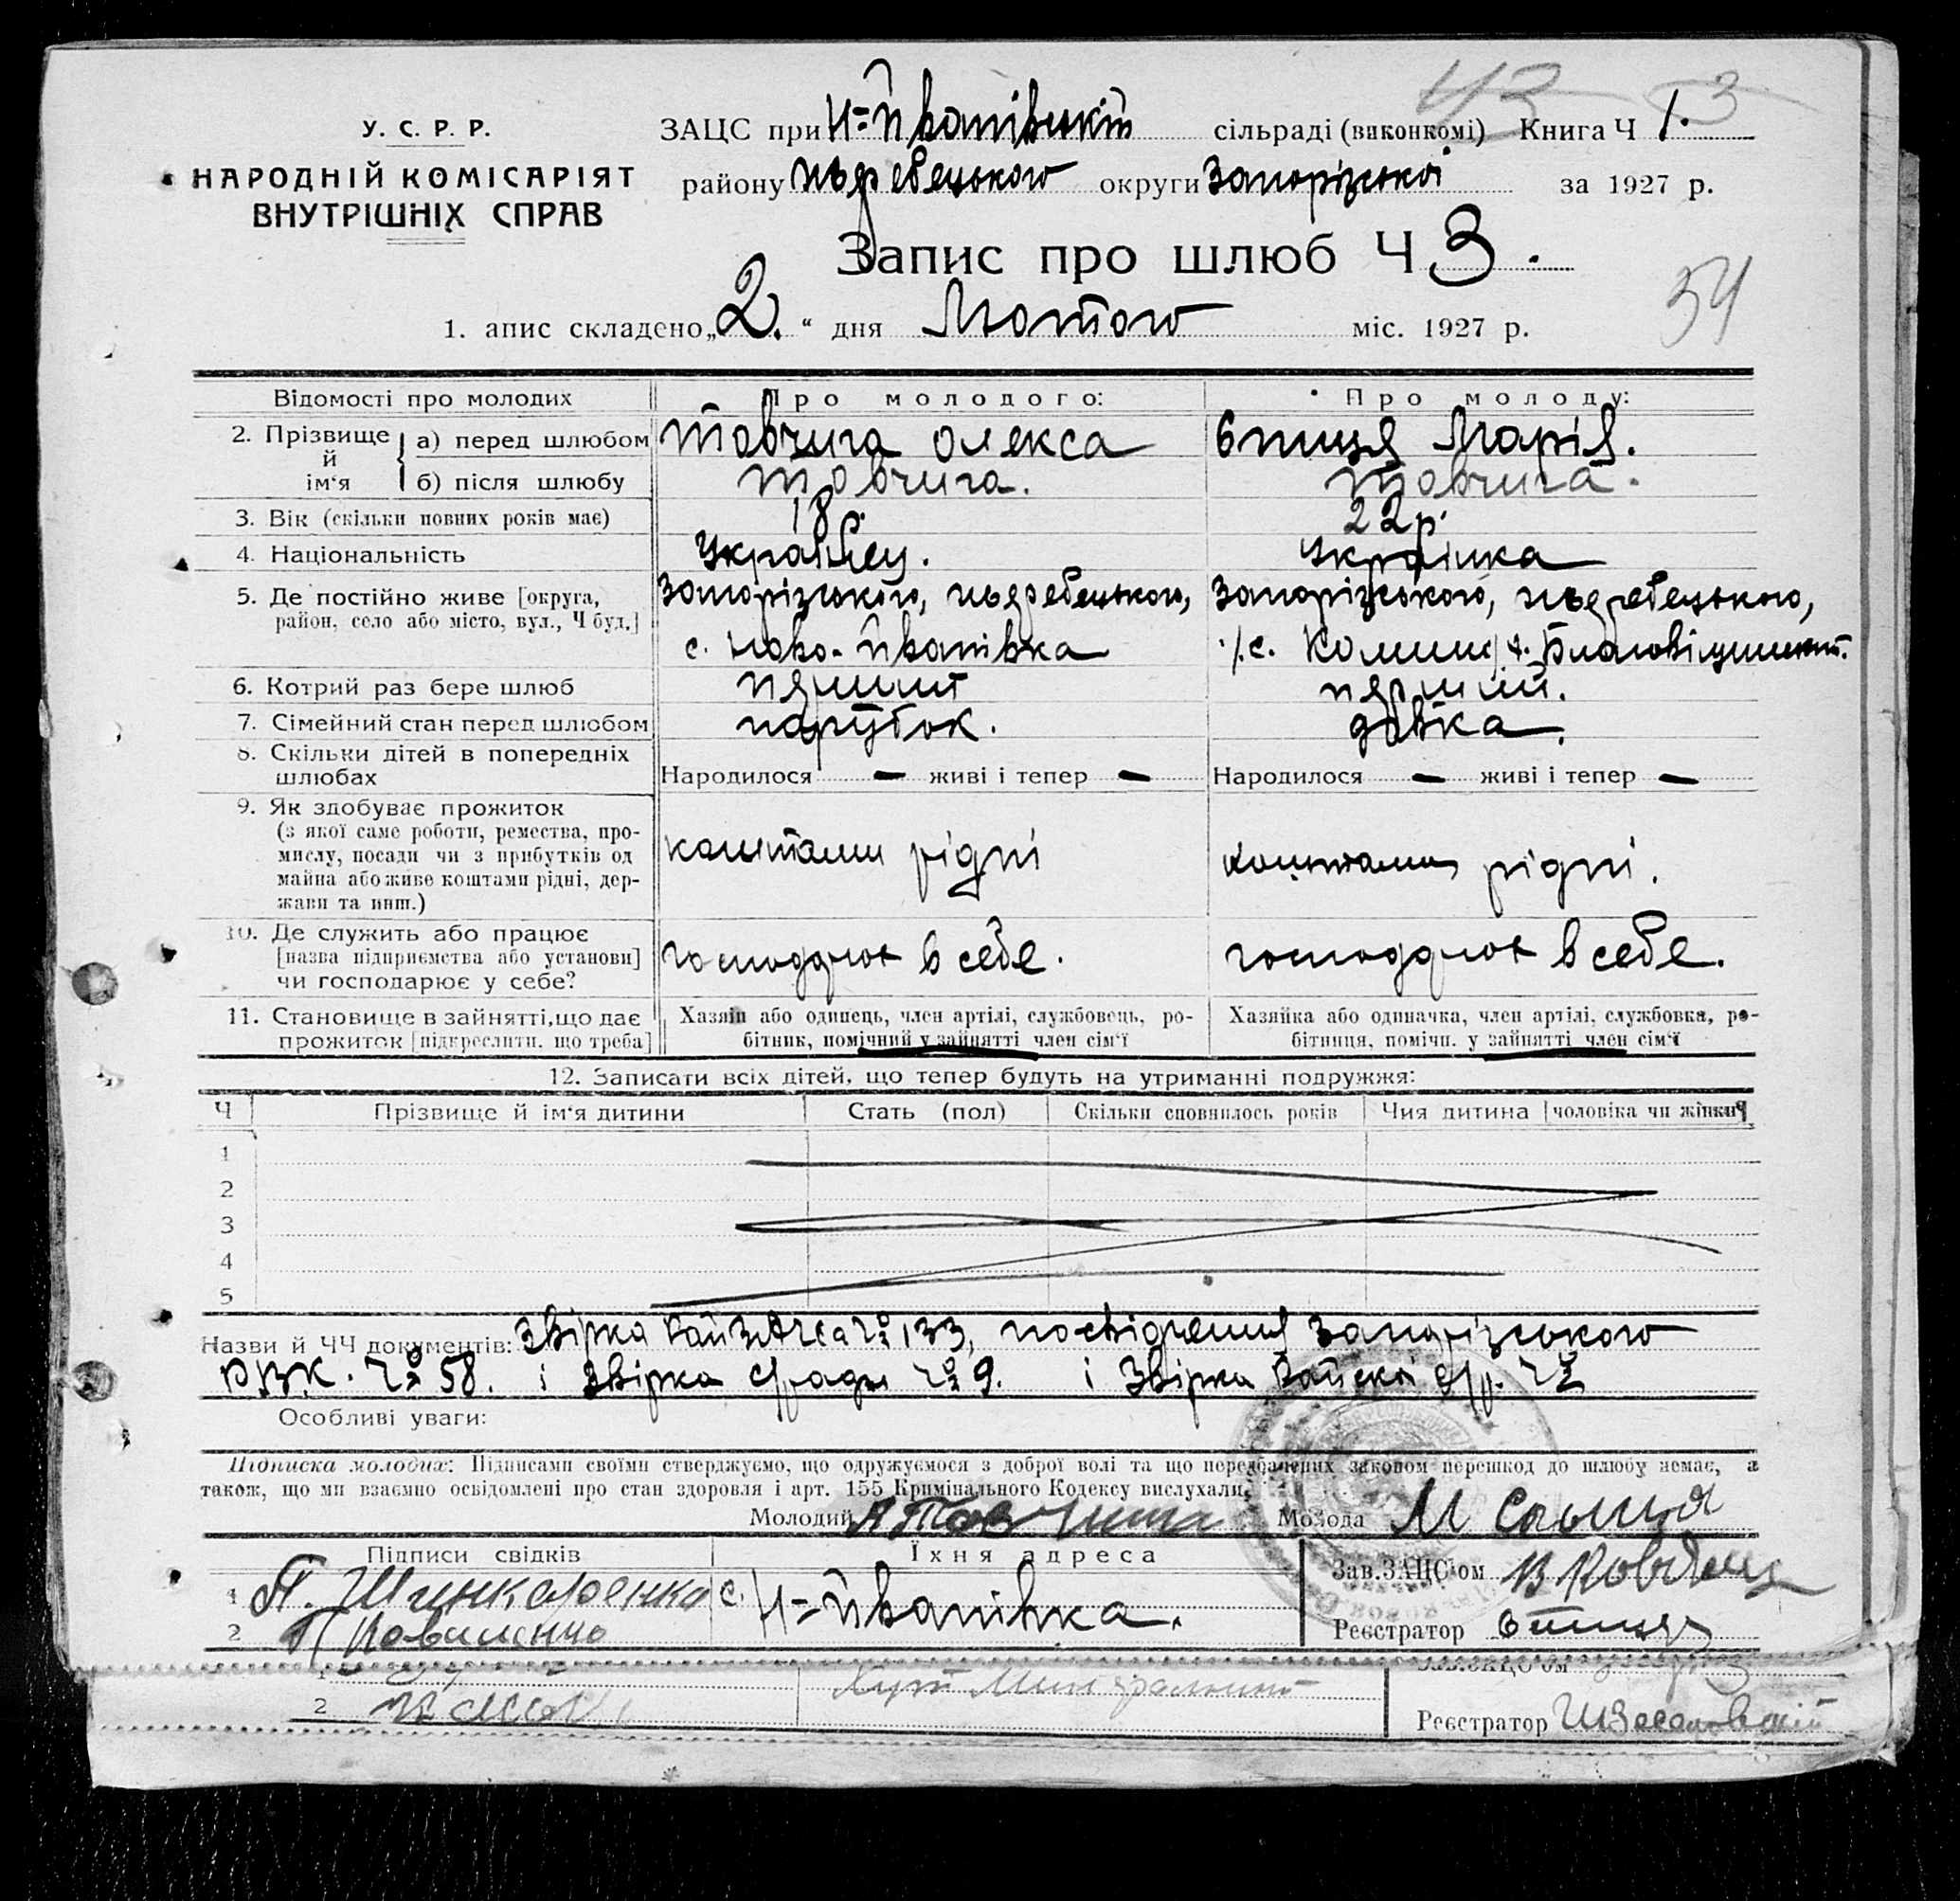 43 3
У. С. Р. Р.
НАРОДНІЙ КОМІСАРІЯТ
ВНУТРІШНІХ СПРАВ
ЗАЦС при Н=Иванівській сільраді (виконкомі) Книга Ч 1.
району округи Запорізької за 1927 р.
Запис про шлюб Ч 3.
34
1. апис складено „2.“ дня Лютого міс. 1927 р.
Відомості про молодих Про молодого: Про молоду:
2. Прізвище й ім‘я
а) перед шлюбом Товчига Олекса Марія.
б) після шлюбу Товчига. Товчига.
3. Вік (скільки повних років має) 18. 22р.
4. Національність Українец. Українка
5. Де постійно живе [округа, Запорізького, Запорізького,
район, село або місто, вул., Ч буд.] с. Ново-Иванівка с.
6. Котрий раз бере шлюб перший.
7. Сімейний стан перед шлюбом парубок. дівка.
8. Скільки дітей в попередніх
шлюбах Народилося — живі і тепер — Народилося — живі і тепер —
9. Як здобуває прожиток
(з якої саме роботи, ремества, про-
мислу, посади чи з прибутків од коштами рідні коштами рідні.
майна або живе коштами рідні, дер-
жави та инш.)
10. Де служить або працює
[назва підприємства або установи] в себе. в себе.
чи господарює у себе?
11. Становище в зайнятті, що дає Хазяїн або одинець, член артілі, службовець, ро- Хазяйка або одиначка, член артілі, службовка, ро-
прожиток [підкреслити, що треба] бітник, помічний у зайнятті член сім‘ї бітниця, помічн. у зайнятті член сім‘ї
12. Записати всіх дітей, що тепер будуть на утриманні подружжя:
Ч Прізвище й ім‘я дитини Стать (пол) Скільки сповнилось років Чия дитина [чоловіка чи жінки]
1
2
3
4
5
Назви й ЧЧ документів: Звірка № 133, посвідчення Запорізького
№ 58. і Звірка с/ради № 9. і Звірка
Особливі уваги:
Підписка молодих: Підписами своїми стверджуємо, що одружуємося з доброї волі та що передбачених законом перешкод до шлюбу немає, а
також, що ми взаємно освідомлені про стан здоровля і арт. 155 Кримінального Кодексу вислухали.
Молодий А Товчига Молода М
Підписи свідків Їхня адреса Зав.ЗАЦС‘ом
1 П. Шинкаренко с. Н=Иванівка.
2 П Коваленко Реєстратор
1 Зав.ЗАЦС‘ом
2 Хут Реєстратор